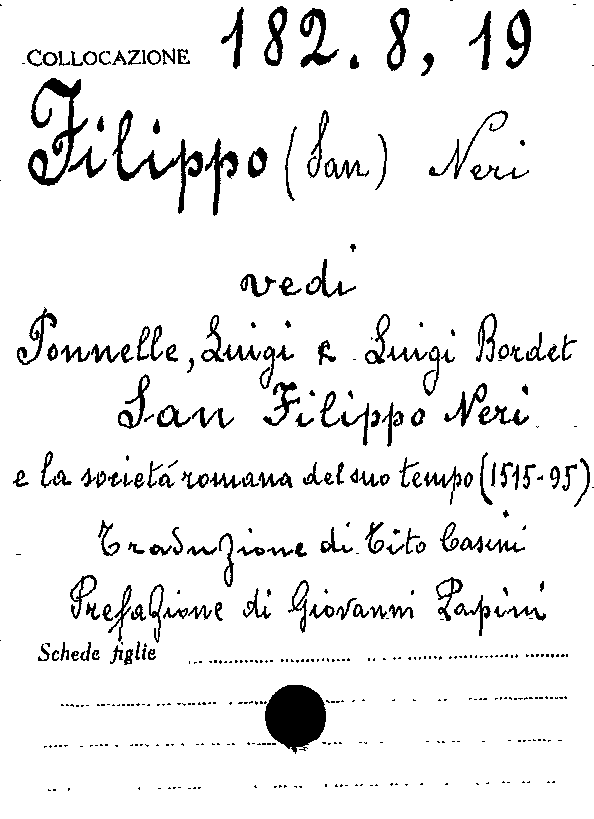 COLLOCAZIONE 182.8,19
Filippo (San) Neri
vedi
Ponnelle, Luigi e Luigi Bordet
San Filippo Neri
e la societá romana del suo tempo (1515-95)
Traduzione di Tito Casini
Prefazione di Giovanni Papini
Schede figlie